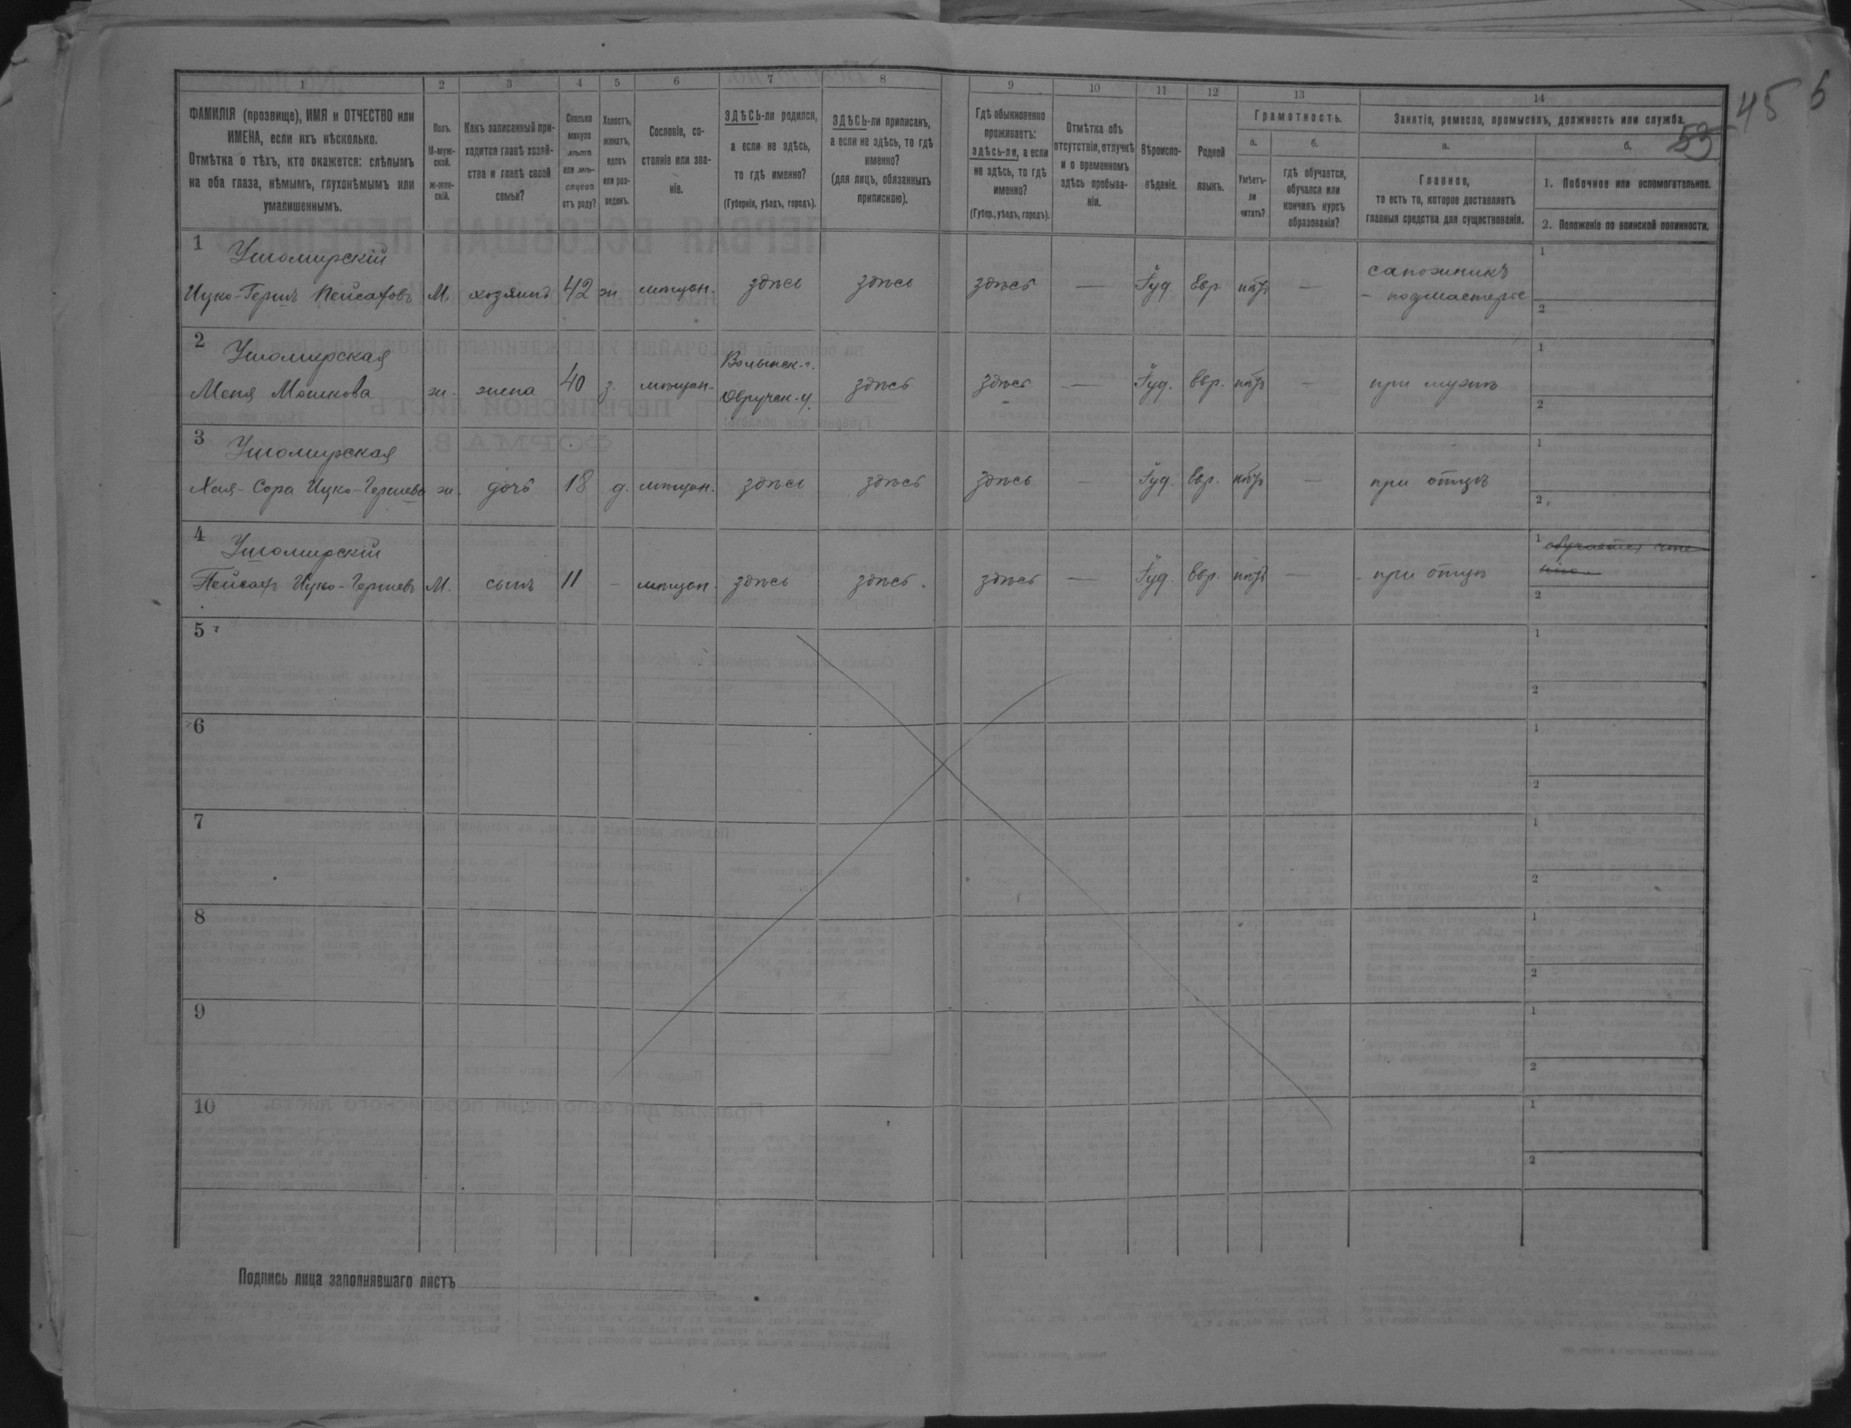 45 6
53
1 2 3 4 5 6 7 8 9 10 11 12 13 14
ФАМИЛІЯ (прозвище), ИМЯ и ОТЧЕСТВО или
ИМЕНА, если ихъ нѣсколько.
Отмѣтка о тѣхъ, кто окажется: слѣпымъ
на оба глаза, нѣмымъ, глухонѣмымъ или
умалишеннымъ.
Полъ.
М-муж-
ской.
ж-жен-
скій.
Какъ записанный при-
ходится главѣ хозяй-
ства и главѣ своей
семьи?
Сколько
минуло
лѣтъ
или мѣ-
сяцевъ
отъ роду?
Холостъ,
женатъ,
вдовъ
или раз-
веденъ.
Сословіе, со-
стояніе или зва-
ніе.
ЗДѢСЬ-ли родился,
а если не здѣсь,
то гдѣ именно?
(Губернія, уѣздъ, городъ).
ЗДѢСЬ-ли приписанъ,
а если не здѣсь, то гдѣ
именно?
(для лицъ, обязанныхъ
припискою).
Гдѣ обыкновенно
проживаетъ:
здѣсь-ли, а если
не здѣсь, то гдѣ
именно?
(Губер., уѣздъ, городъ).
Отмѣтка объ
отсутствіи, отлучкѣ
и о временномъ
здѣсь пребыва-
ніи.
Вѣроиспо-
вѣданіе.
Родной
языкъ.
Грамотность.
а.
Умѣетъ-
ли
читать?
б.
гдѣ обучается,
обучался или
кончилъ курсъ
образованія?
Занятіе, ремесло, промыселъ, должность или служба.
а.
Главное,
то есть то, которое доставляетъ
главныя средства для существованія.
б.
1. Побочное или вспомогательное.
2. Положеніе по воинской повинности.
1 Ушомирскій
Ицко-Гершъ Пейсаховъ М. хозяинъ 42 ж мѣщан. здѣсь здѣсь здѣсь — Іуд. Евр. нѣтъ — сапожникъ
- подмастерье
2 Ушомирская
Меня Мошкова ж. жена 40 з. мѣщан. Волынск. г.
Овручск. у. здѣсь здѣсь — Іуд. Евр. нѣтъ — при мужѣ
3 Ушомирская
Хая-Сора Ицко-Гершева ж. дочь 18 д. мѣщан. здѣсь здѣсь здѣсь — Іуд. Евр. нѣтъ — при отцѣ
4 Ушомирскій
Пейсахъ Ицко-Гершевъ М. сынъ 11 - мѣщан. здѣсь здѣсь. здѣсь — Іуд. Евр. нѣтъ — при отцѣ
1 обучается чте-
нію
5
6
7
8
9
10
Подпись лица заполнявшаго листъ